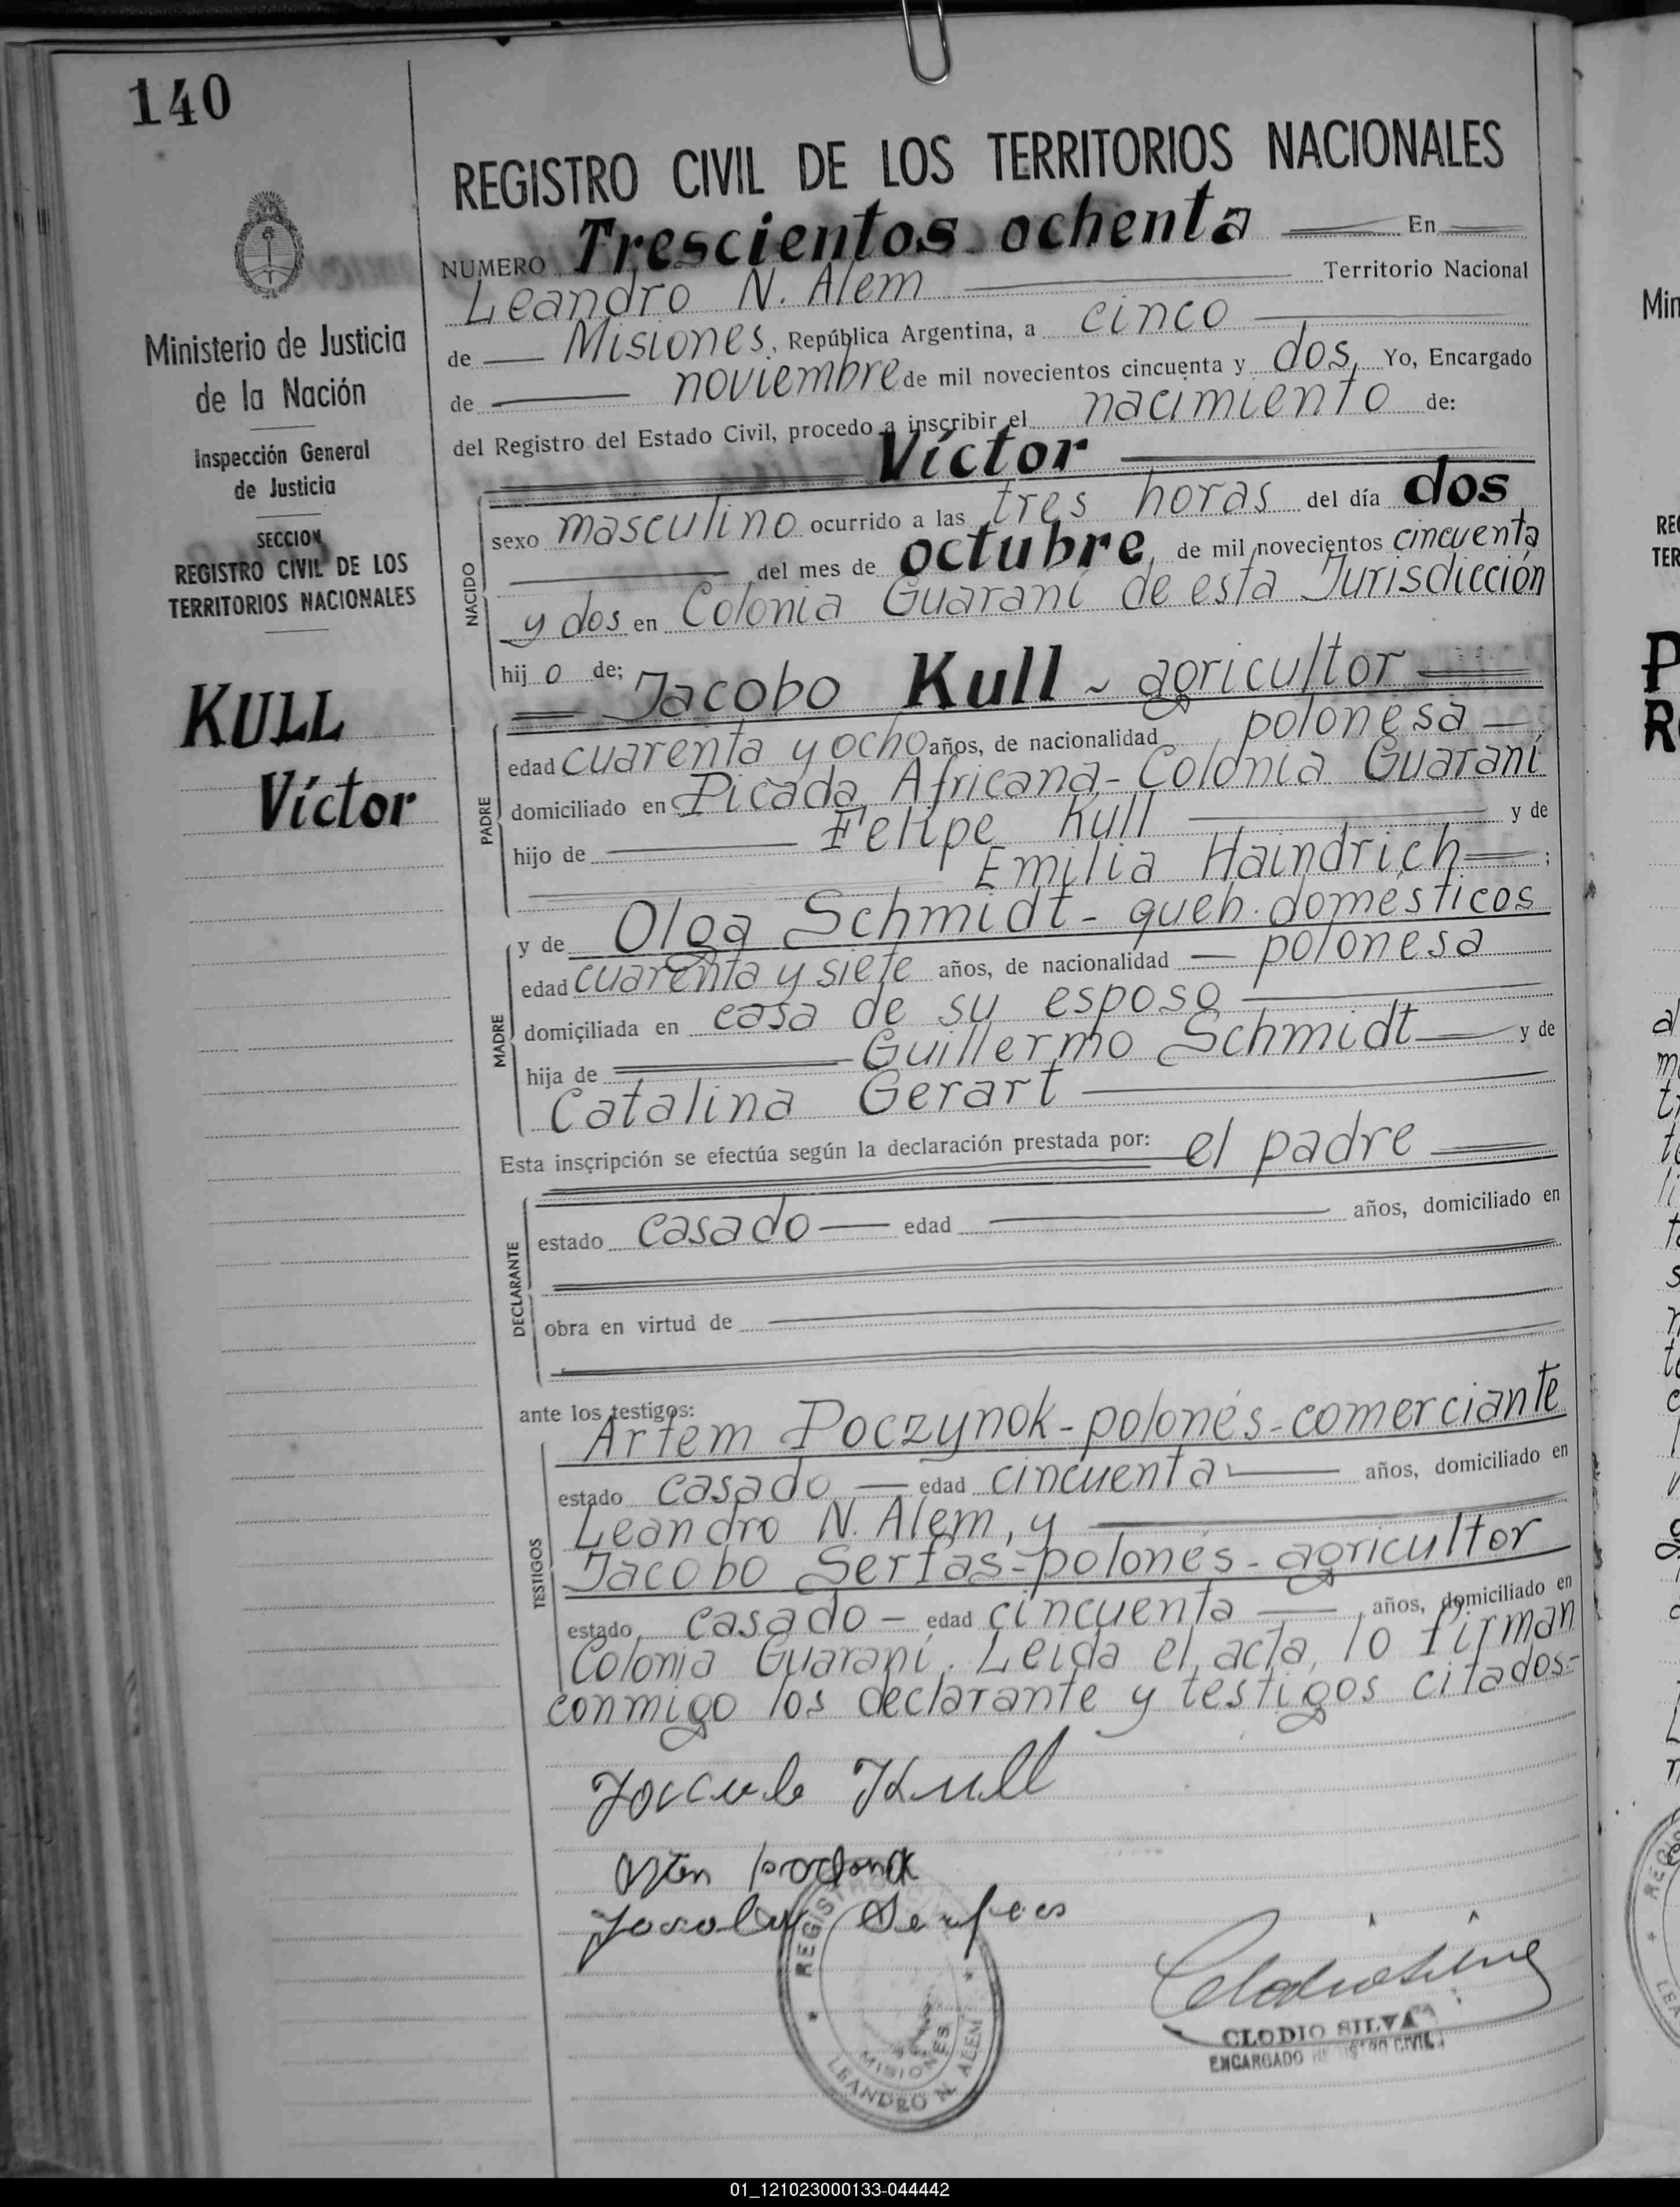 140
Ministerio de Justicia
de la Nación
Inspección General
de Justicia
SECCION
REGISTRO CIVIL DE LOS
TERRITORIOS NACIONALES
KULL
Víctor
REGISTRO CIVIL DE LOS TERRITORIOS NACIONALES
NUMERO Trescientos ochenta En
Leandro N. Alem Territorio Nacional
de Misiones, República Argentina, a cinco
de noviembre de mil novecientos cincuenta y dos, Yo, Encargado
del Registro del Estado Civil, procedo a inscribir el nacimiento de:
Víctor
NACIDO
sexo masculino ocurrido a las tres horas del día dos
del mes de octubre, de mil novecientos cincuenta
y dos en Colonia Guaraní de esta Jurisdicción
hijo de;
Jacobo Kull ~ agricultor
PADRE
edad cuarenta y ocho años, de nacionalidad polonesa
domiciliado en Picada Africana - Colonia Guaraní
hijo de Felipe Kull y de
Emilia Haindrich ;
MADRE
y de Olga Schmidt - queh. domésticos
edad cuarenta y siete años, de nacionalidad polonesa
domiciliada en casa de su esposo
hija de Guillermo Schmidt y de
Catalina Gerart
Esta inscripción se efectúa según la declaración prestada por: el padre
DECLARANTE
estado casado edad años, domiciliado en
obra en virtud de
ante los testigos:
TESTIGOS
Artem Poczynok - polonés - comerciante
estado casado edad cincuenta años, domiciliado en
Leandro N. Alem, y
Jacobo Serfas - polonés - agricultor
estado casado - edad cincuenta años, domiciliado en
Colonia Guaraní. Leida el acta, lo firman
conmigo los declarante y testigos citados -
Kull
REGISTRO
MISIONES
LEANDRO N. ALEM
CLODIO SILVA
ENCARGADO REGISTRO CIVIL
01_121023000133-044442